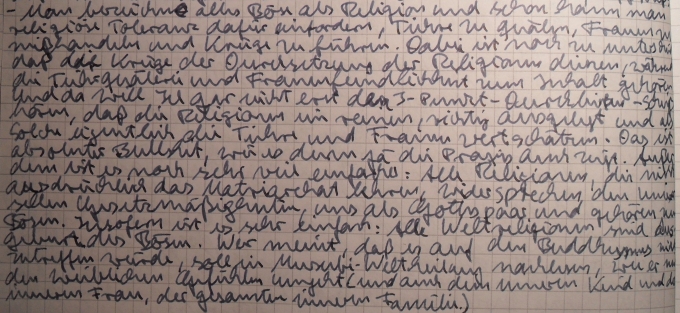 - Man bezeichne alles Böse als Religion und schon kann man
religiöse Toleranz dafür einfordern, Tiere zu quälen, Frauen zu
misshandeln und Kriege zu führen. Dabei ist noch zu
daß die Kriege der Durchsetzung der Religionen dienen,
die Tierquälerei und Frauenfeindlichkeit zum Inhalt gehören
Und da will ich gar nicht erst den 3-Punkt-
hören, daß die Religionen im reinen, richtig ausgelegt und
solche eigentlich die Tiere und Frauen wertschätzen. Das ist
absoluter Bullshit, wie es denn ja die Praxis auch zeigt.
dem ist es noch sehr viel einfacher: Alle Religionen, die nicht
ausdrücklich das Matriarchat lehren, widersprechen den
Gesetzmäßigkeiten, uns als Gottespaar, und gehören zum
Bösen. Insofern ist es sehr einfach: Alle Weltreligionen sind
geburt des Bösen. Wer meint, daß es auf den Buddhismus nicht
zutreffen würde, soll in nachlesen, wie er mit
den weiblichen Gefühlen umgeht (und auch dem inneren Kind und der
inneren Frau, der gesamten inneren Familie.)